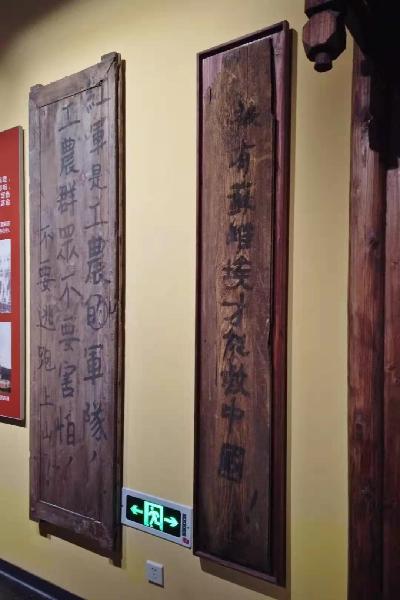 有蘇維埃才能救中國！
紅軍是工農的軍隊，
工農群眾不要害怕！
不要逃跑上山！